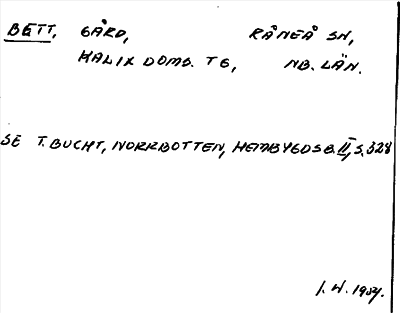 BETT, GÅRD, RÅNEÅ SN,
KALIX DOMS. TG, NB. LÄN.
SE T. BUCHT, NORRBOTTEN, HEMBYGDSB. II, S. 328
J. H. 1934.